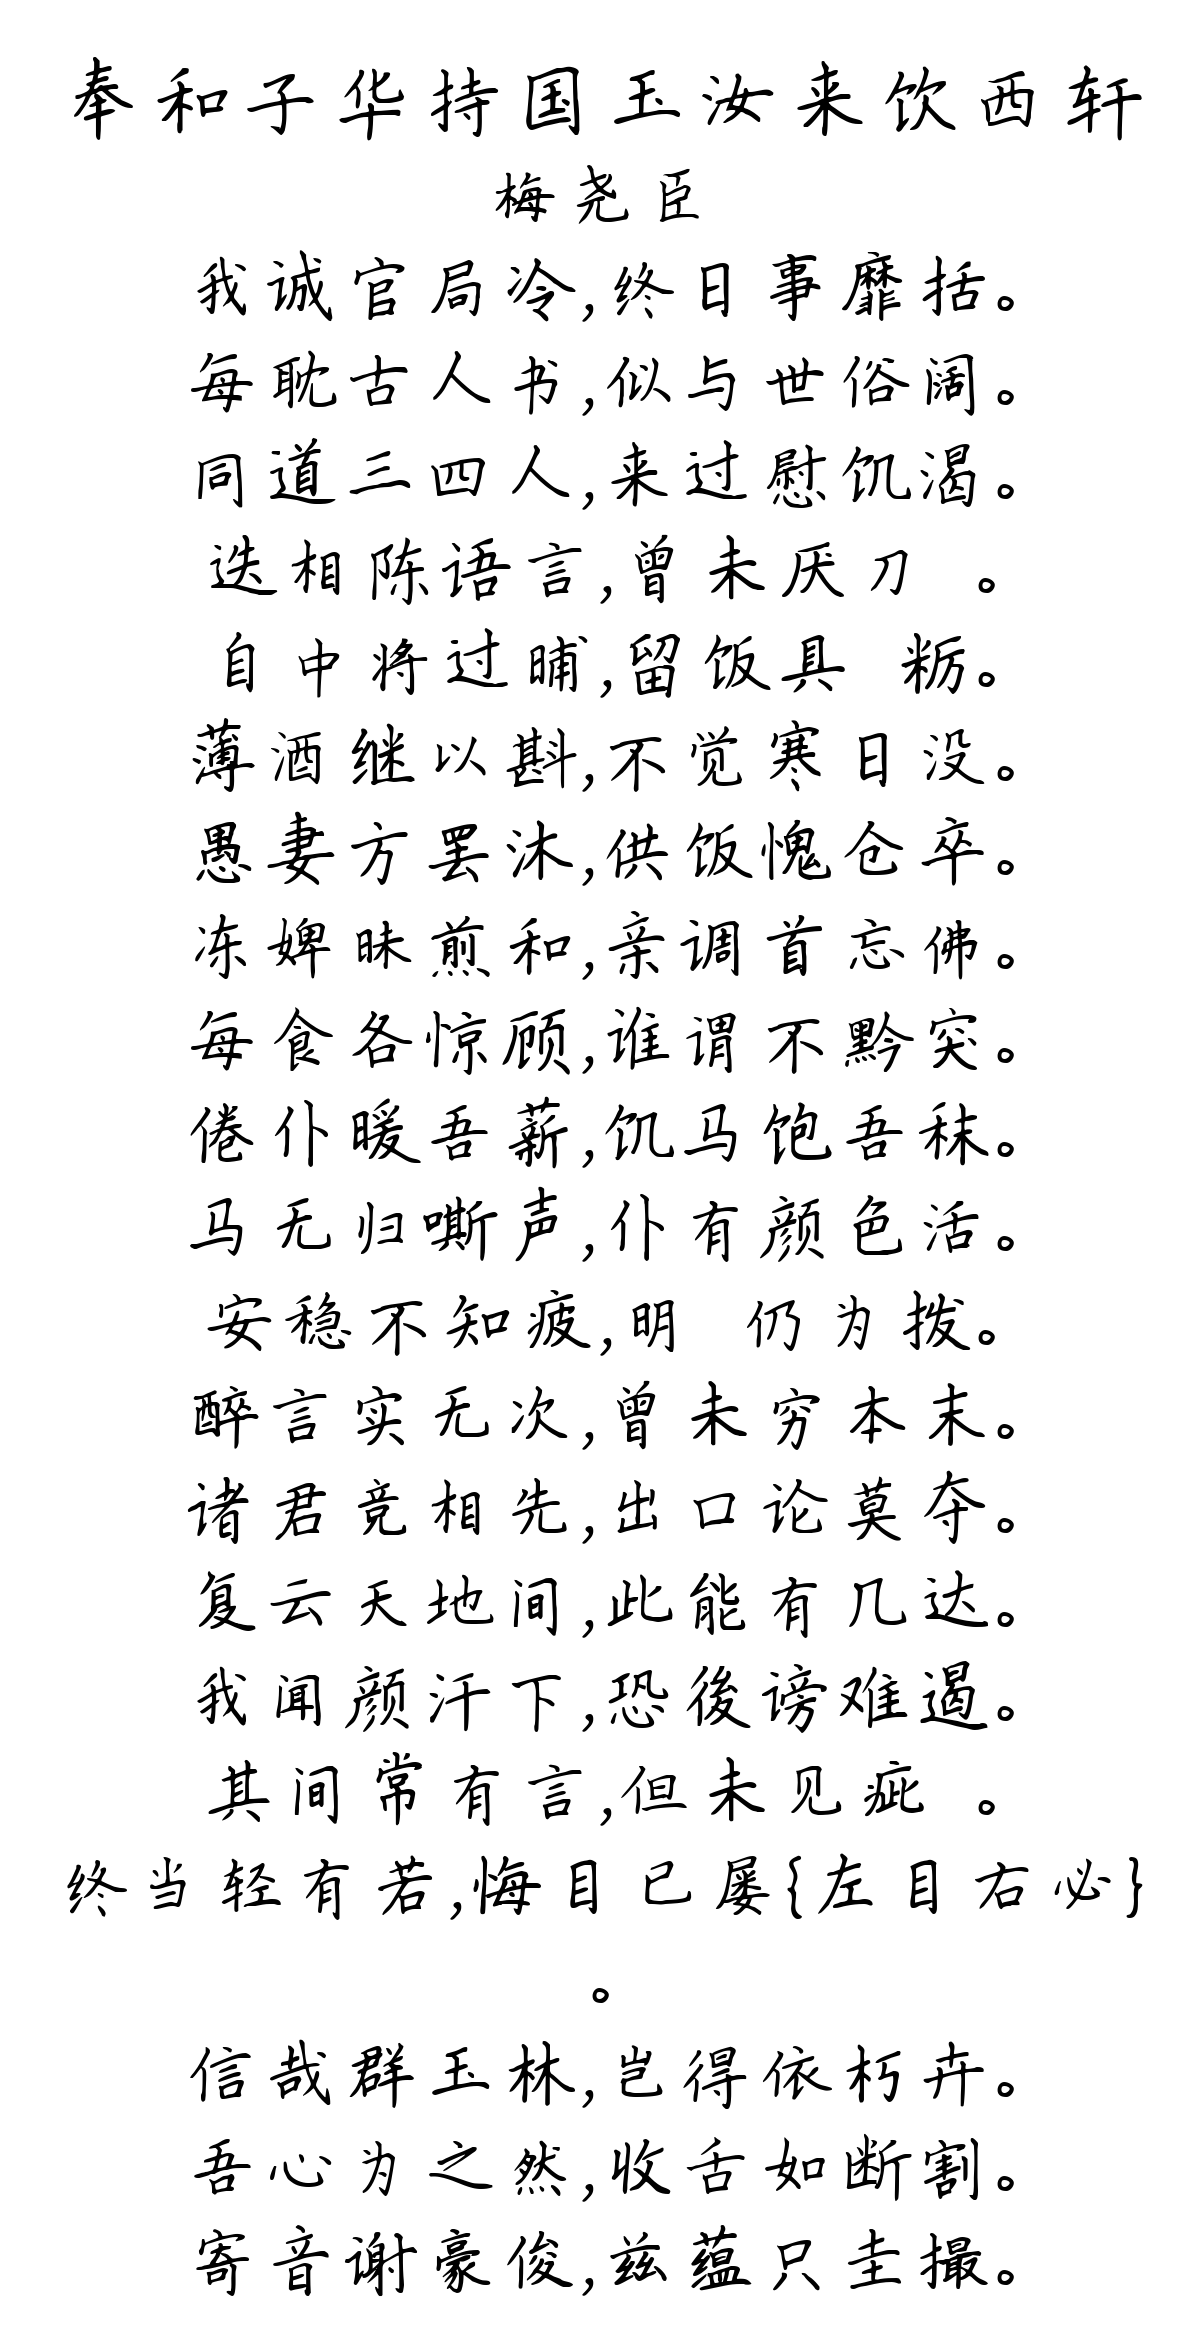 奉和子华持国玉汝来饮西轩
梅尧臣
我诚官局冷,终日事靡括。
每耽古人书,似与世俗阔。
同道三四人,来过慰饥渴。
迭相陈语言,曾未厌刀 。
自中将过晡,留饭具 粝。
薄酒继以斟,不觉寒日没。
愚妻方罢沐,供饭愧仓卒。
冻婢昧煎和,亲调首忘佛。
每食各惊顾,谁谓不黔突。
倦仆暖吾薪,饥马饱吾秣。
马无归嘶声,仆有颜色活。
安稳不知疲,明 仍为拨。
醉言实无次,曾未穷本末。
诸君竞相先,出口论莫夺。
复云天地间,此能有几达。
我闻颜汗下,恐後谤难遏。
其间常有言,但未见疵 。
终当轻有若,悔目已屡{左目右必}
。
信哉群玉林,岂得依朽卉。
吾心为之然,收舌如断割。
寄音谢豪俊,兹蕴只圭撮。